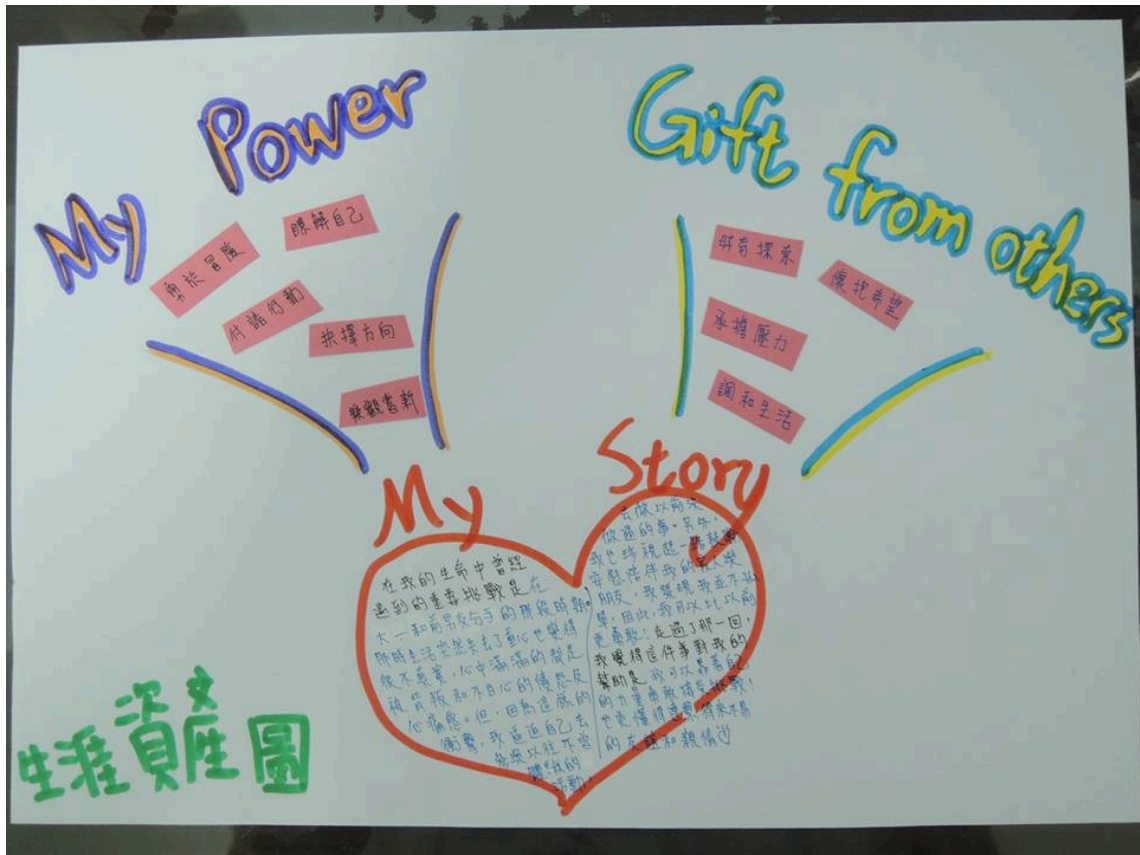 My Power
瞭解自己
勇於冒險
付諸行動
抉擇方向
樂觀嘗新
Gift from others
好奇探索
懷抱希望
承擔壓力
調和生活
My Story
在我的生命中曾經
遇到的重要挑戰是在
大一和前男友分手的那段時期。
那時生活突然失去了重心也變得
很不真實,心中滿滿的都是
被背叛和不甘心的憤怒及
心痛感。但,因為這樣的
衝擊,我逼迫自己去
參與以往不會
接觸的
活動,
去做以前沒
做過的事。另外,
我也珍視起一路鼓勵
安慰陪伴我的家人與
朋友,我發現我並不孤
單,因此,我可以比以前
更勇敢。走過了那一回,
我覺得這件事對我的
幫助是我可以靠著自己
的力量勇敢接受挑戰!
也更懂得珍惜得來不易
的友誼和親情♡
生涯資產圖